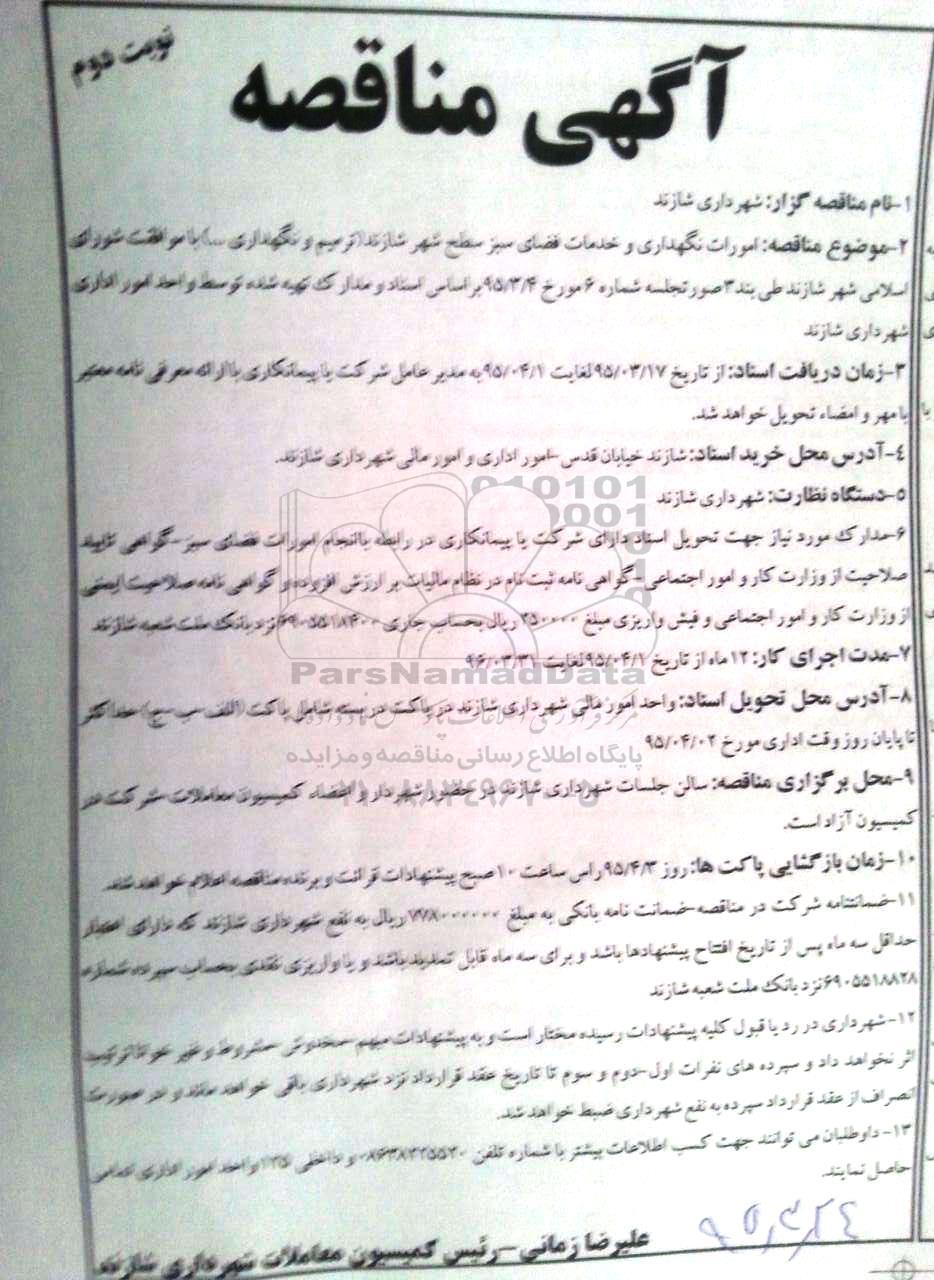 نوبت دوم
آگهی مناقصه
۱-نام مناقصه گزار: شهرداری شازند
۲-موضوع مناقصه: امورات نگهداری و خدمات فضای سبز سطح شهر شازند(ترمیم و نگهداری ...)با موافقت شورای
اسلامی شهر شازند طی بند۳صورتجلسه شماره ۶مورخ ۹۵/۳/۴براساس اسناد و مدارک تهیه شده توسط واحد امور اداری
شهرداری شازند
۳-زمان دریافت اسناد: از تاریخ ۹۵/۰۳/۱۷لغایت ۹۵/۰۴/۱به مدیر عامل شرکت یا پیمانکاری با ارائه معرفی نامه معتبر
با مهر و امضاء تحویل خواهد شد.
۴-آدرس محل خرید اسناد: شازند خیابان قدس-امور اداری و امور مالی شهرداری شازند.
۵-دستگاه نظارت: شهرداری شازند
۶-مدارک مورد نیاز جهت تحویل اسناد دارای شرکت یا پیمانکاری در رابطه باانجام امورات فضای سبز-گواهی تایید
صلاحیت از وزارت کار و امور اجتماعی-گواهی نامه ثبت نام در نظام مالیات بر ارزش افزوده و گواهی نامه صلاحیت ایمنی
از وزارت کار و امور اجتماعی و فیش واریزی مبلغ ۲۵۰۰۰۰ ریال بحساب جاری ۶۹۰۵۵۱۸۴۰۰نزد بانک ملت شعبه شازند
۷-مدت اجرای کار: ۱۲ماه از تاریخ ۹۵/۰۴/۱لغایت ۹۶/۰۳/۳۱
ParsNamadData
۸-آدرس محل تحویل اسناد: واحد امور مالی شهرداری شازند در پاکت در بسته شامل پاکت (الف-ب-ج) حداکثر
تا پایان روز وقت اداری مورخ ۹۵/۰۴/۰۲
پایگاه اطلاع رسانی مناقصه و مزایده
۹-محل برگزاری مناقصه: سالن جلسات شهرداری شازند در حضور شهردار و اعضاء کمیسیون معاملات شرکت در
کمیسیون آزاد است.
۱۰-زمان بازگشایی پاکت ها: روز ۹۵/۴/۳راس ساعت ۱۰صبح پیشنهادات قرائت و برنده مناقصه اعلام خواهد شد.
۱۱-ضمانتنامه شرکت در مناقصه-ضمانت نامه بانکی به مبلغ ۷۷۸۰۰۰۰۰۰ریال به نفع شهرداری شازند که دارای اعتبار
حداقل سه ماه پس از تاریخ افتتاح پیشنهادها باشد و برای سه ماه قابل تمدید باشد و یا واریزی نقدی بحساب سپرده شماره
۶۹۰۵۵۱۸۸۲۸نزد بانک ملت شعبه شازند
۱۲-شهرداری در رد یا قبول کلیه پیشنهادات رسیده مختار است و به پیشنهادات مبهم-مخدوش-مشروط و غیر خوانا ترتیب
اثر نخواهد داد و سپرده های نفرات اول-دوم و سوم تا تاریخ عقد قرارداد نزد شهرداری باقی خواهد ماند و در صورت
انصراف از عقد قرارداد سپرده به نفع شهرداری ضبط خواهد شد.
۱۳- داوطلبان می توانند جهت کسب اطلاعات بیشتر با شماره تلفن ۰۸۶۳۸۲۲۵۵۲۰ و داخلی ۱۲۵ واحد امور اداری تماس
حاصل نمایند.
۹۵,۳,۲۴
علیرضا زمانی-رئیس کمیسیون معاملات شهرداری شازند